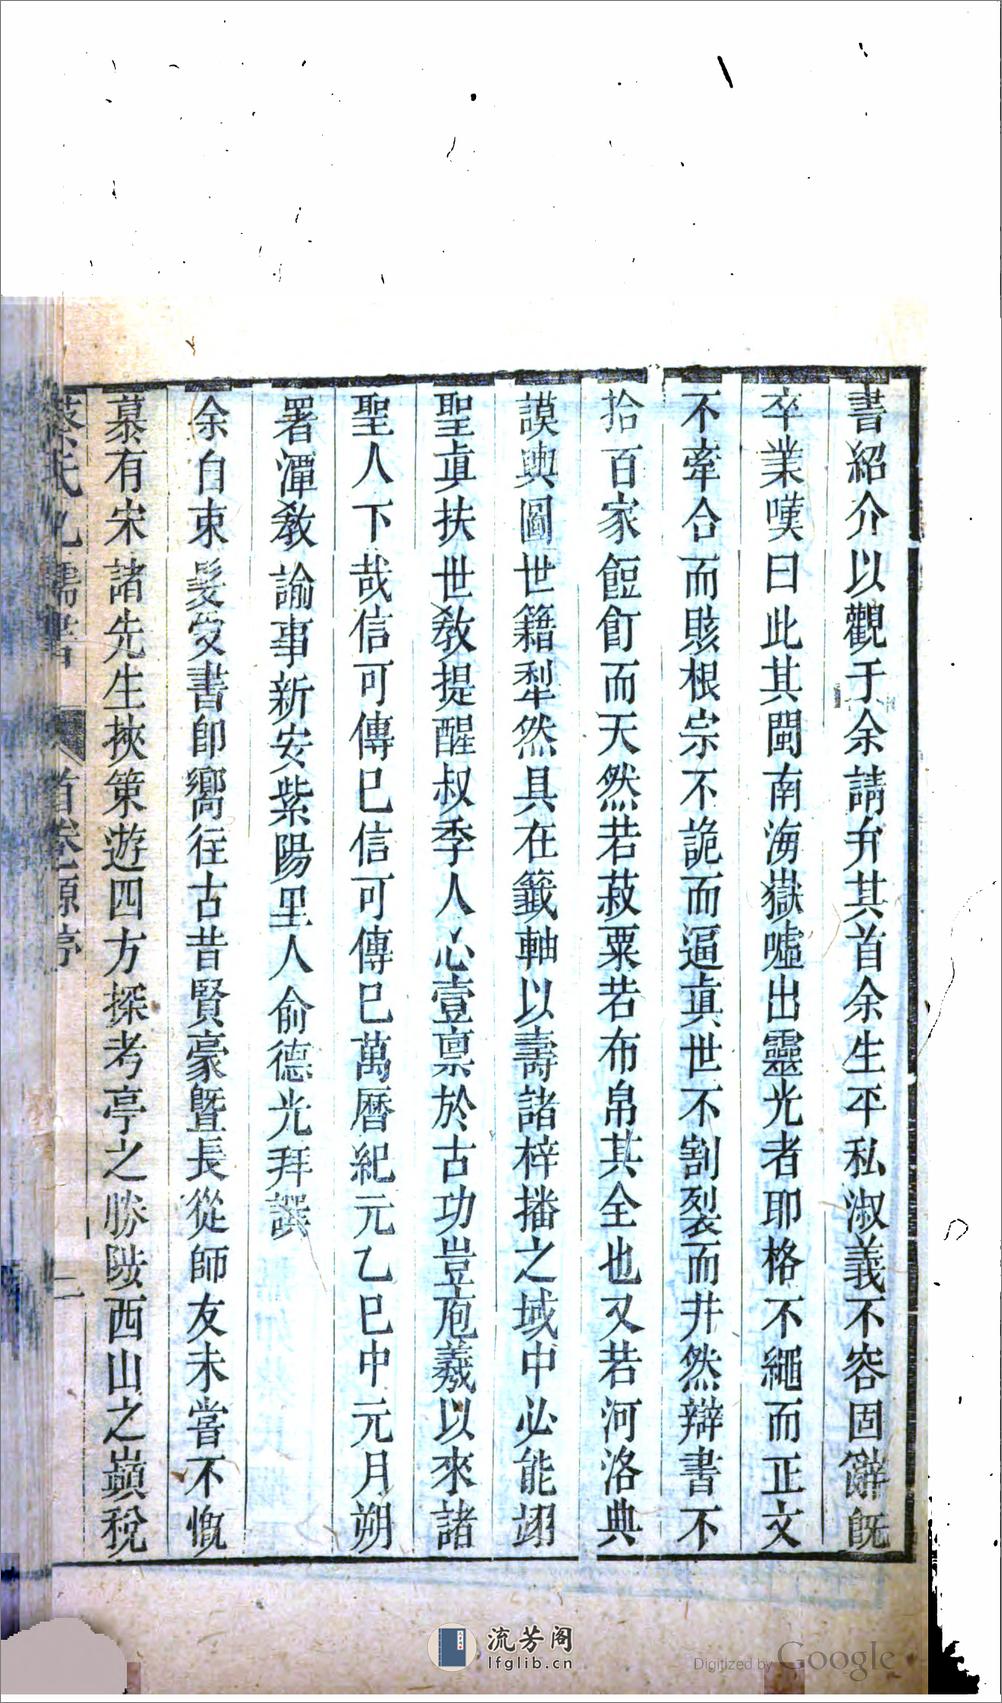 書紹介以觀于余請弁其首余生平私淑義不容固辭既
卒業嘆曰此其閩南海嶽噓出靈光者耶格不繩而正文
不牽合而賅根宗不詭而逼眞世不割裂而井然辯書不
拾百家餖飣而天然若菽粟若布帛其全也又若河洛典
謨輿圖世籍犁然具在籤軸以壽諸梓播之域中必能翊
聖眞扶世敎提醒叔季人心壹禀於古功豈庖羲以來諸
聖人下哉信可傳巳信可傳巳萬曆紀元乙巳中元月朔
署潭敎諭事新安紫陽里人俞德光拜譔
余自束髮受書即嚮往古昔賢豪曁長從師友未嘗不慨
慕有宋諸先生挾策遊四方探考亭之勝陟西山之巔稅
蔡氏九儒書 首卷原序 二
流芳阁
lfglib.cn
Digitized by Google